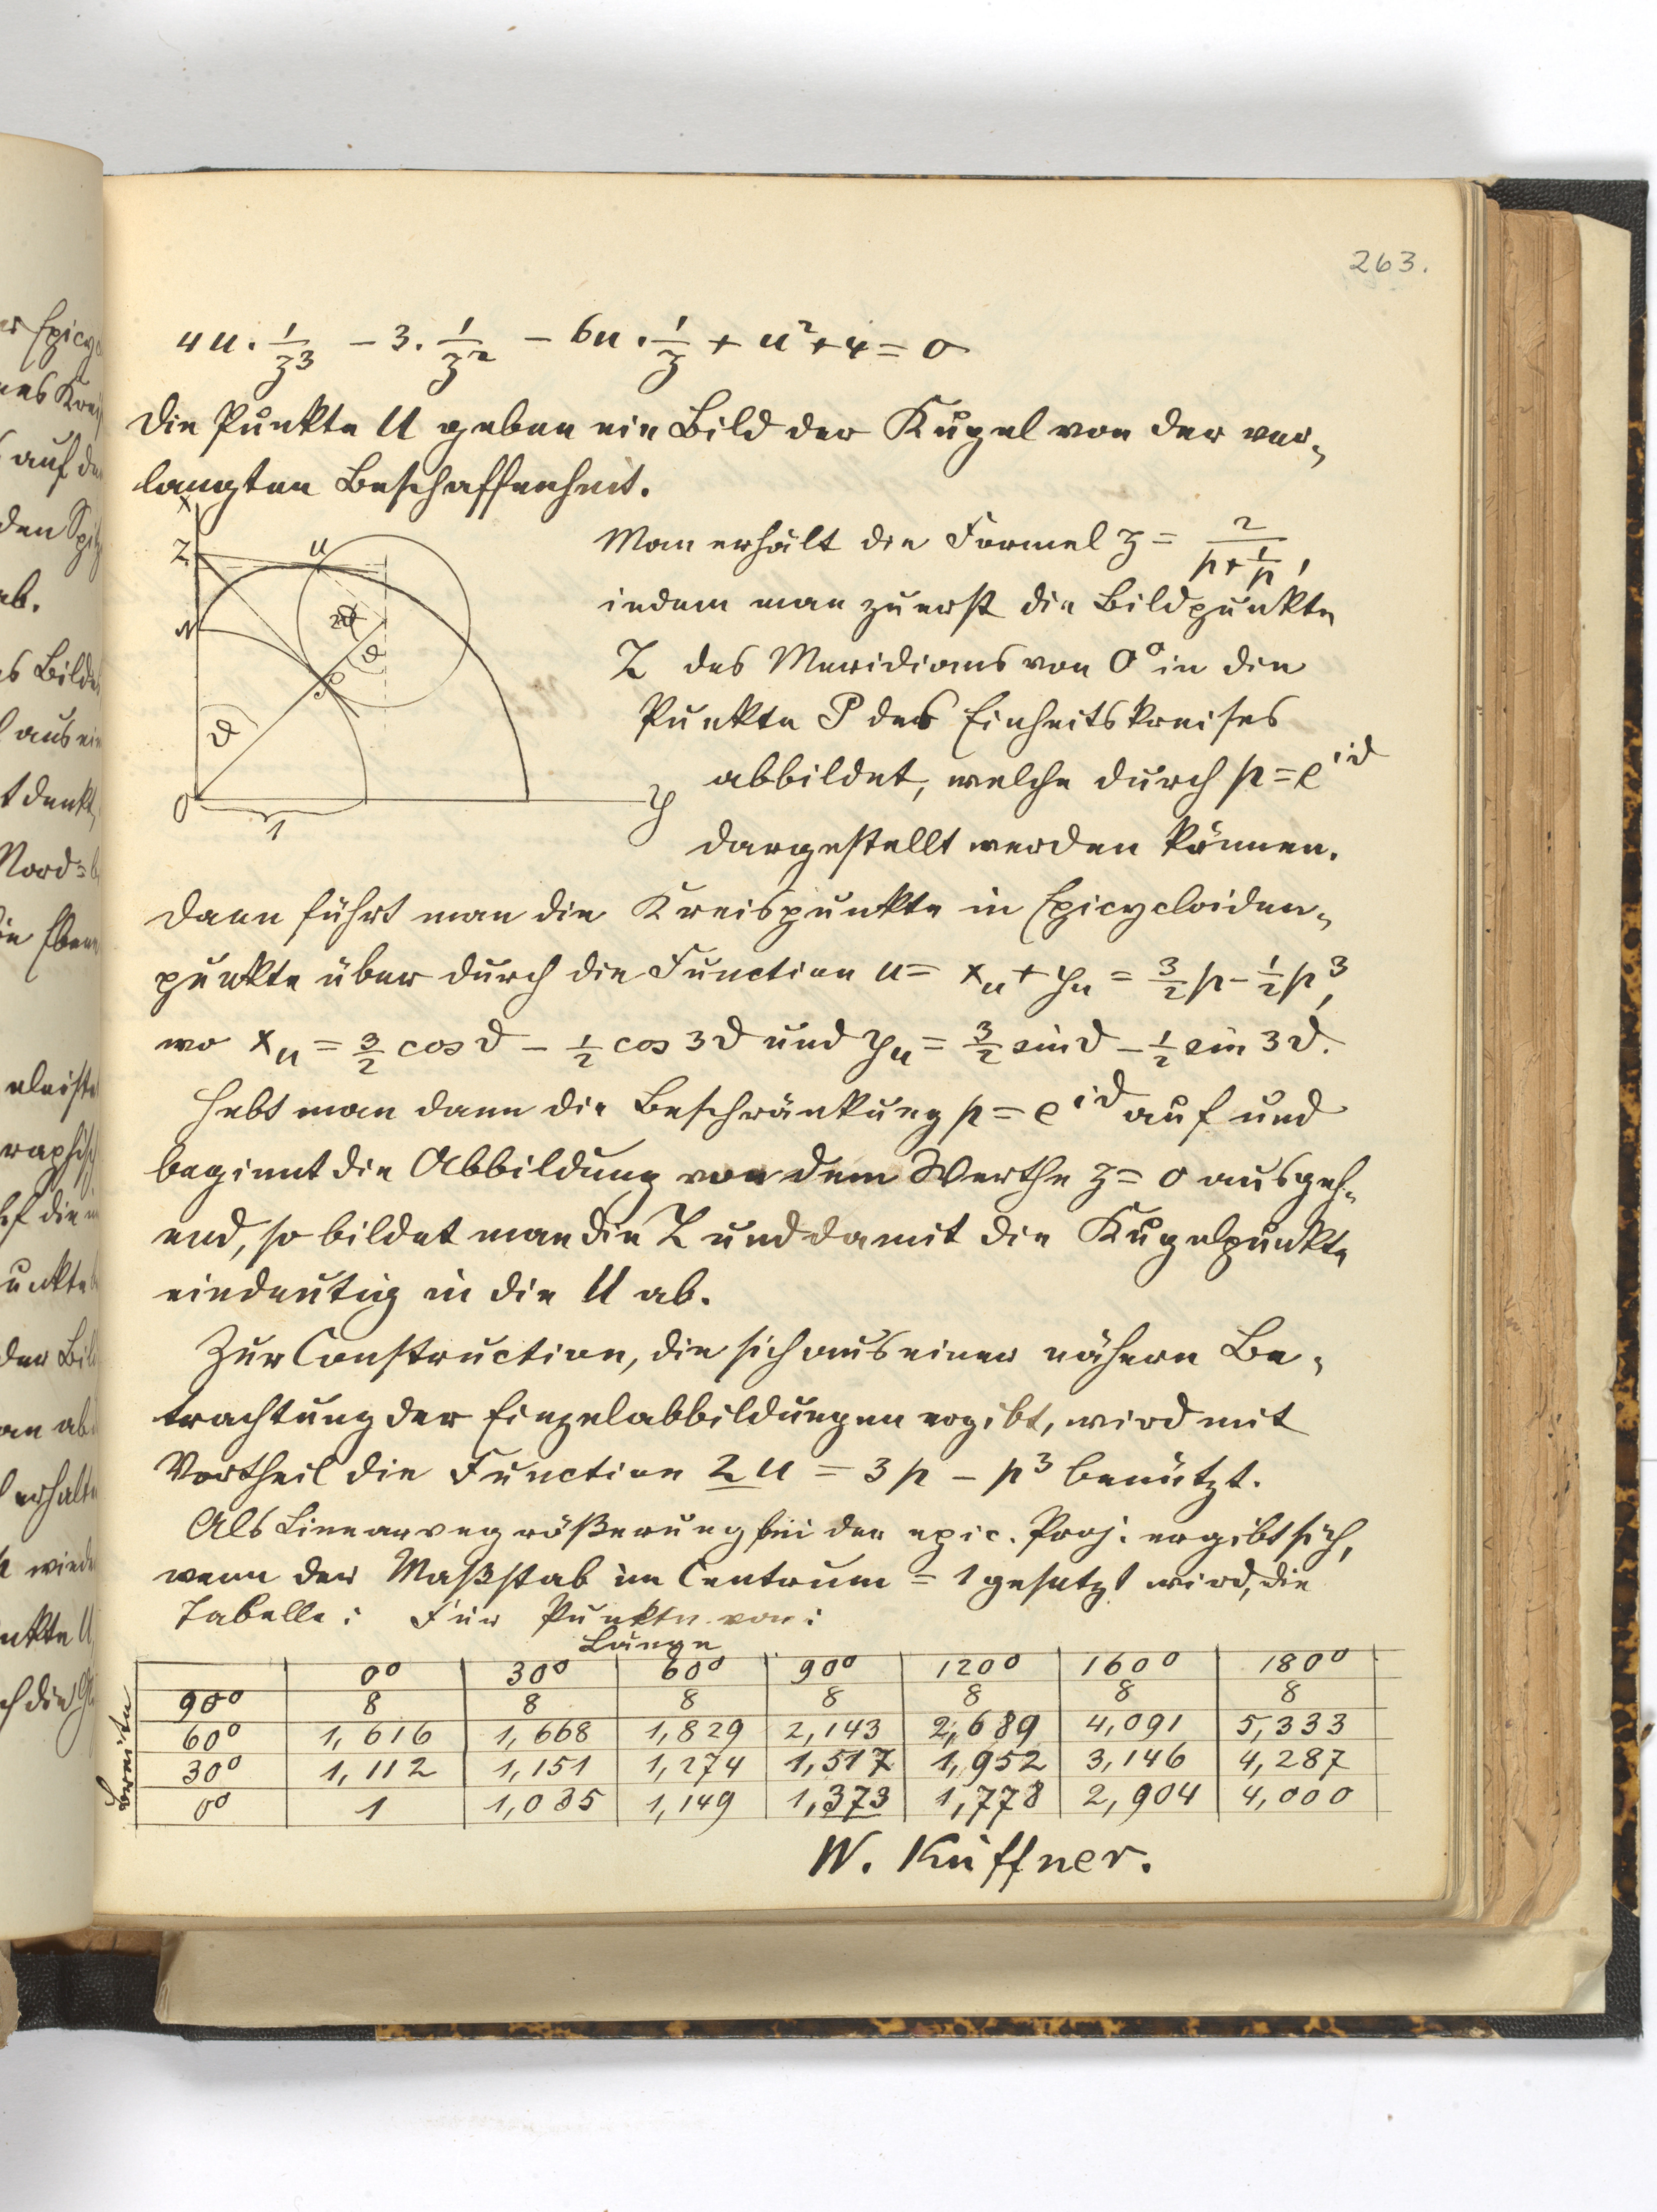 263.
4u · 1/z³ − 3 · 1/z² − 6u · 1/z + u² + 4 = 0
Die Punkte U geben ein Bild der Kugel von der ver-
langten Beschaffenheit.
Man erhält die Formel z = 2/(p + 1/p),
indem man zuerst die Bildpunkte
Z des Meridians von 0° in die
Punkte P des Einheitskreises
abbildet, welche durch p = e^{iϑ}
dargestellt werden können.
X
Z
U
N
2ϑ
ϑ
P
ϑ
O
1
Y
Dann führt man die Kreispunkte in Epicycloiden-
punkte über durch die Function u = x_u + y_u = 3/2 p − 1/2 p³,
wo x_u = 3/2 cos ϑ − 1/2 cos 3ϑ und y_u = 3/2 sin ϑ − 1/2 sin 3ϑ.
Hebt man dann die Beschränkung p = e^{iϑ} auf und
beginnt die Abbildung von dem Werthe z = 0 ausgeh-
end, so bildet man die Z und damit die Kugelpunkte
eindeutig in die U ab.
Zur Construction, die sich aus einer nähern Be-
trachtung der Einzelabbildungen ergibt, wird mit
Vortheil die Function 2u = 3p − p³ benützt.
Als Linearvergrößerung bei der epic. Proj. ergibt sich,
wenn der Maßstab im Centrum = 1 gesetzt wird, die
Tabelle: Für Punkte von:
Länge
0° 30° 60° 90° 120° 160° 180°
Breite
90° 8 8 8 8 8 8 8
60° 1,616 1,668 1,829 2,143 2,689 4,091 5,333
30° 1,112 1,151 1,274 1,517 1,952 3,146 4,287
0° 1 1,035 1,149 1,373 1,778 2,904 4,000
W. Küffner.